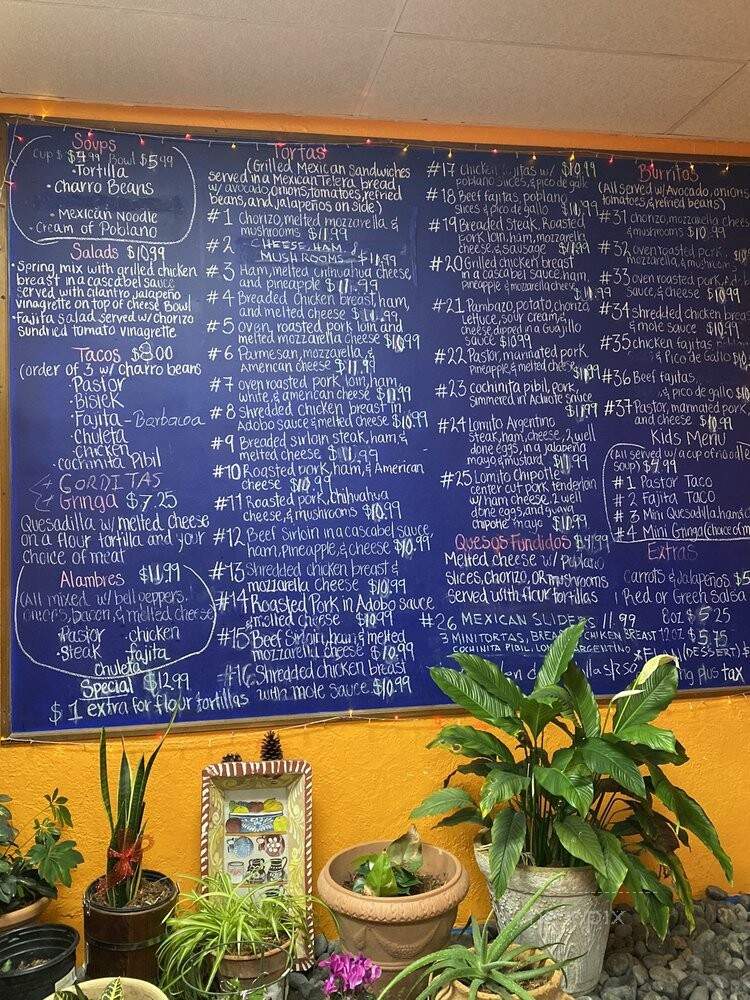 Soups
Cup $ $4.99 Bowl $5.99
· Tortilla
· Charro Beans
· Mexican Noodle
· Cream of Poblano
Salads $10.99
· Spring mix with grilled chicken
breast in a cascabel sauce
served with cilantro jalapeño
vinagrette on top of cheese Bowl
· Fajita salad served w/ chorizo
sundried tomato vinagrette
Tacos $8.00
(order of 3 w/ charro beans
· Pastor
· Bistek
· Fajita - Barbacoa
· Chuleta
· chicken
· cochinita Pibil
GORDITAS
Gringa $7.25
Quesadilla w/ melted cheese
on a flour tortilla and your
choice of meat
Alambres $11.99
(All mixed w/ bell peppers,
onions, bacon, & melted cheese
· Pastor · chicken
· Steak · fajita
chuleta
Special $12.99
$1 extra for flour tortillas
Tortas
(Grilled Mexican sandwiches
served in a Mexican Telera bread
w/ avocado, onions, tomatoes, refried
beans, and jalapeños on side)
#1 Chorizo, melted mozzarella, &
mushrooms $11.99
#2 CHEESE, HAM, &
MUSHROOMS $11.99
#3 Ham, melted chihuahua cheese,
and pineapple $11.99
#4 Breaded chicken breast, ham,
and melted cheese $11.99
#5 oven, roasted pork loin and
melted mozzarella cheese $10.99
#6 Parmesan, mozzarella, &
American cheese $11.99
#7 oven roasted pork loin, ham,
white, & american cheese $11.99
#8 Shredded chicken breast in
Adobo sauce & melted cheese $10.99
#9 Breaded sirloin steak, ham, &
melted cheese $11.99
#10 Roasted pork, ham, & American
cheese $10.99
#11 Roasted pork, chihuahua
cheese, & mushrooms $10.99
#12 Beef Sirloin in a cascabel sauce,
ham, pineapple, & cheese $10.99
#13 Shredded chicken breast &
mozzarella cheese $10.99
#14 Roasted Pork in Adobo sauce
& melted cheese $10.99
#15 Beef Sirloin, ham, & melted
mozzarella cheese $10.99
#16 Shredded chicken breast
with mole sauce $10.99
#17 Chicken fajitas w/ $10.99
poblano slices, & pico de gallo
#18 Beef fajitas, poblano
slices & pico de gallo $10.99
#19 Breaded Steak, Roasted
pork loin, ham, mozzarella
cheese, & sausage $11.99
#20 Grilled chicken breast
in a cascabel sauce, ham,
pineapple & mozzarella cheese
$11.99
#21 Pambazo, potato, chorizo,
lettuce, sour cream, &
cheese dipped in a Guajillo
sauce $10.99
#22 Pastor, marinated pork,
pineapple, & melted cheese
$11.99
#23 cochinita pibil, pork,
simmered in Achiote sauce
$11.99
#24 Lomito Argentino
steak, ham, cheese, 2 well
done eggs, in a jalapeña
mayo & mustard $11.99
#25 Lomito Chipotle
center cut pork tenderloin
w/ ham, cheese, 2 well
done eggs, and guang
chipotle mayo $10.99
Quesos Fundidos $4.99
Melted cheese w/ Poblano
slices, chorizo, OR mushrooms
served with flour tortillas
#26 MEXICAN SLIDERS 11.99
3 MINITORTAS, BREADED CHICKEN BREAST
COCHINITA PIBIL, LOMO ARGENTINO
Burritos
(All served w/ Avocado, onions
tomatoes, & refried beans)
#31 chorizo, mozzarella cheese
& mushrooms $10.99
#32 oven roasted pork,
mozzarella, & mushrooms
#33 oven roasted pork, adobo
sauce, & cheese $10.99
#34 shredded chicken breast
& mole sauce $10.99
#35 chicken fajitas
& Pico de Gallo
#36 Beef fajitas,
& pico de gallo
#37 Pastor, marinated pork
and cheese $10.99
Kids Menu
(All served w/ a cup of noodle
soup) $7.99
#1 Pastor Taco
#2 Fajita TACO
#3 Mini Quesadilla, ham
#4 Mini Gringa (choice of m
Extras
Carrots & Jalapeños $5
1 Red or Green Salsa
8oz $5.25
12oz $5.75
*FLAN (DESSERT) $
plus tax